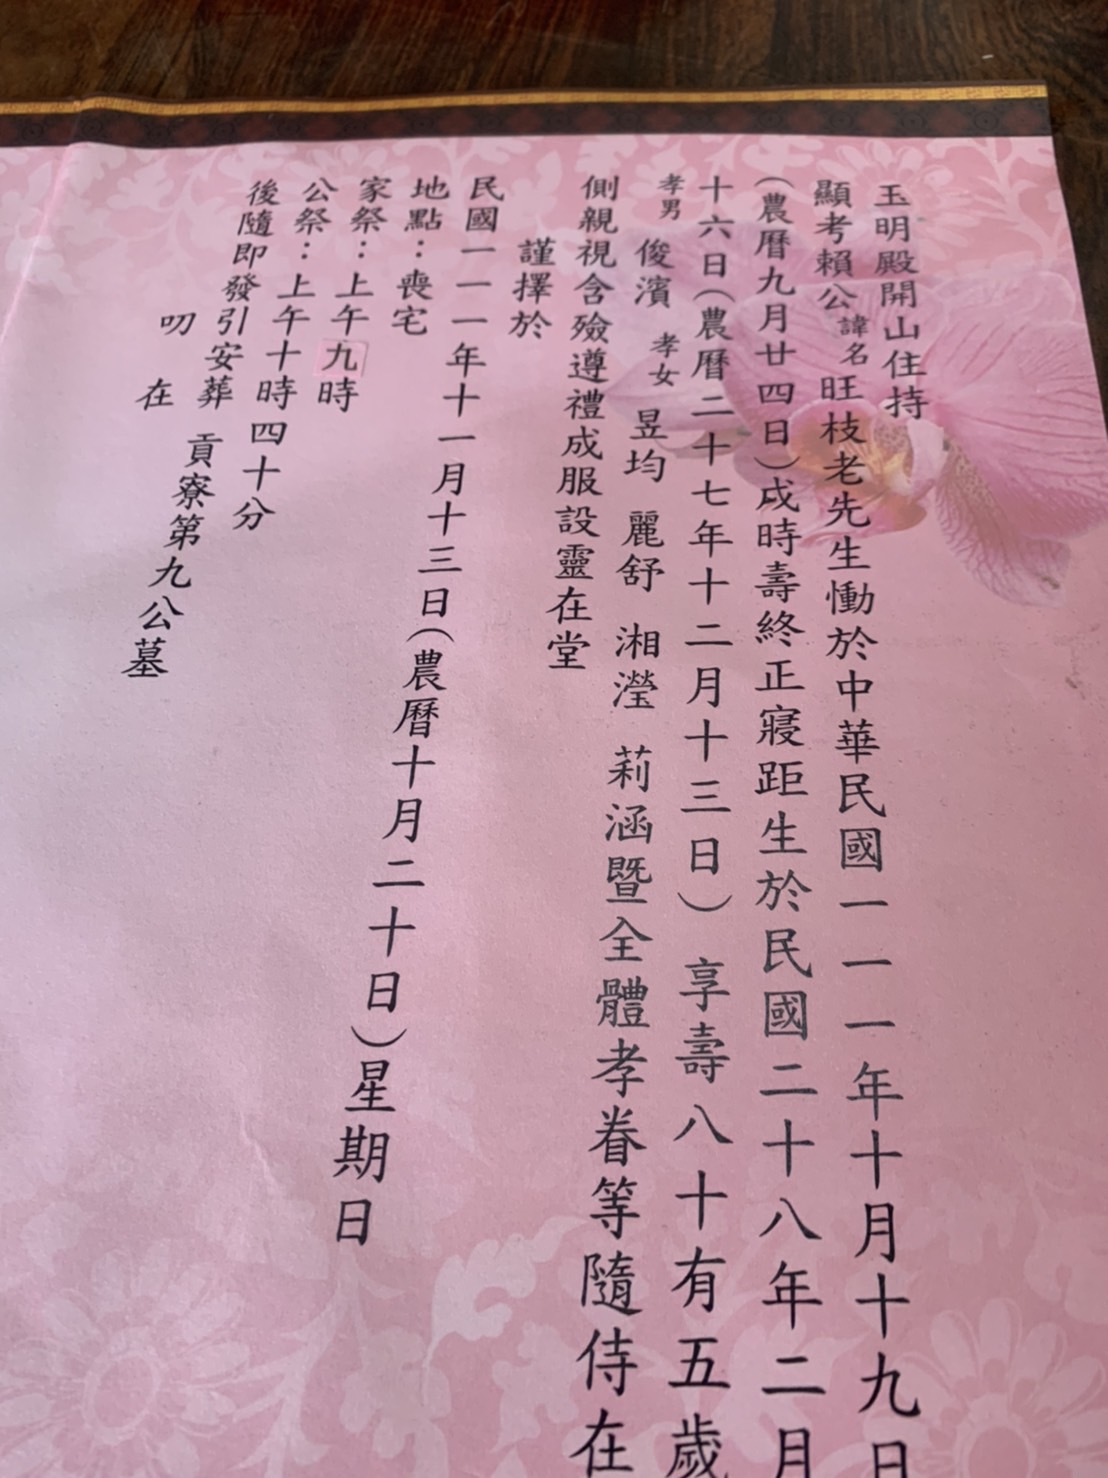 玉明殿開山住持
顯考賴公諱名旺枝老先生慟於中華民國一一一年十月十九日
(農曆九月廿四日)戌時壽終正寢距生於民國二十八年二月
十六日(農曆二十七年十二月十三日)享壽八十有五歲
孝男 俊濱 孝女 昱均 麗舒 湘瀅 莉涵暨全體孝眷等隨侍在
側親視含殮遵禮成服設靈在堂
謹擇於
民國一一一年十一月十三日(農曆十月二十日)星期日
地點：喪宅
家祭：上午九時
公祭：上午十時四十分
後隨即發引安葬 貢寮第九公墓
叨 在